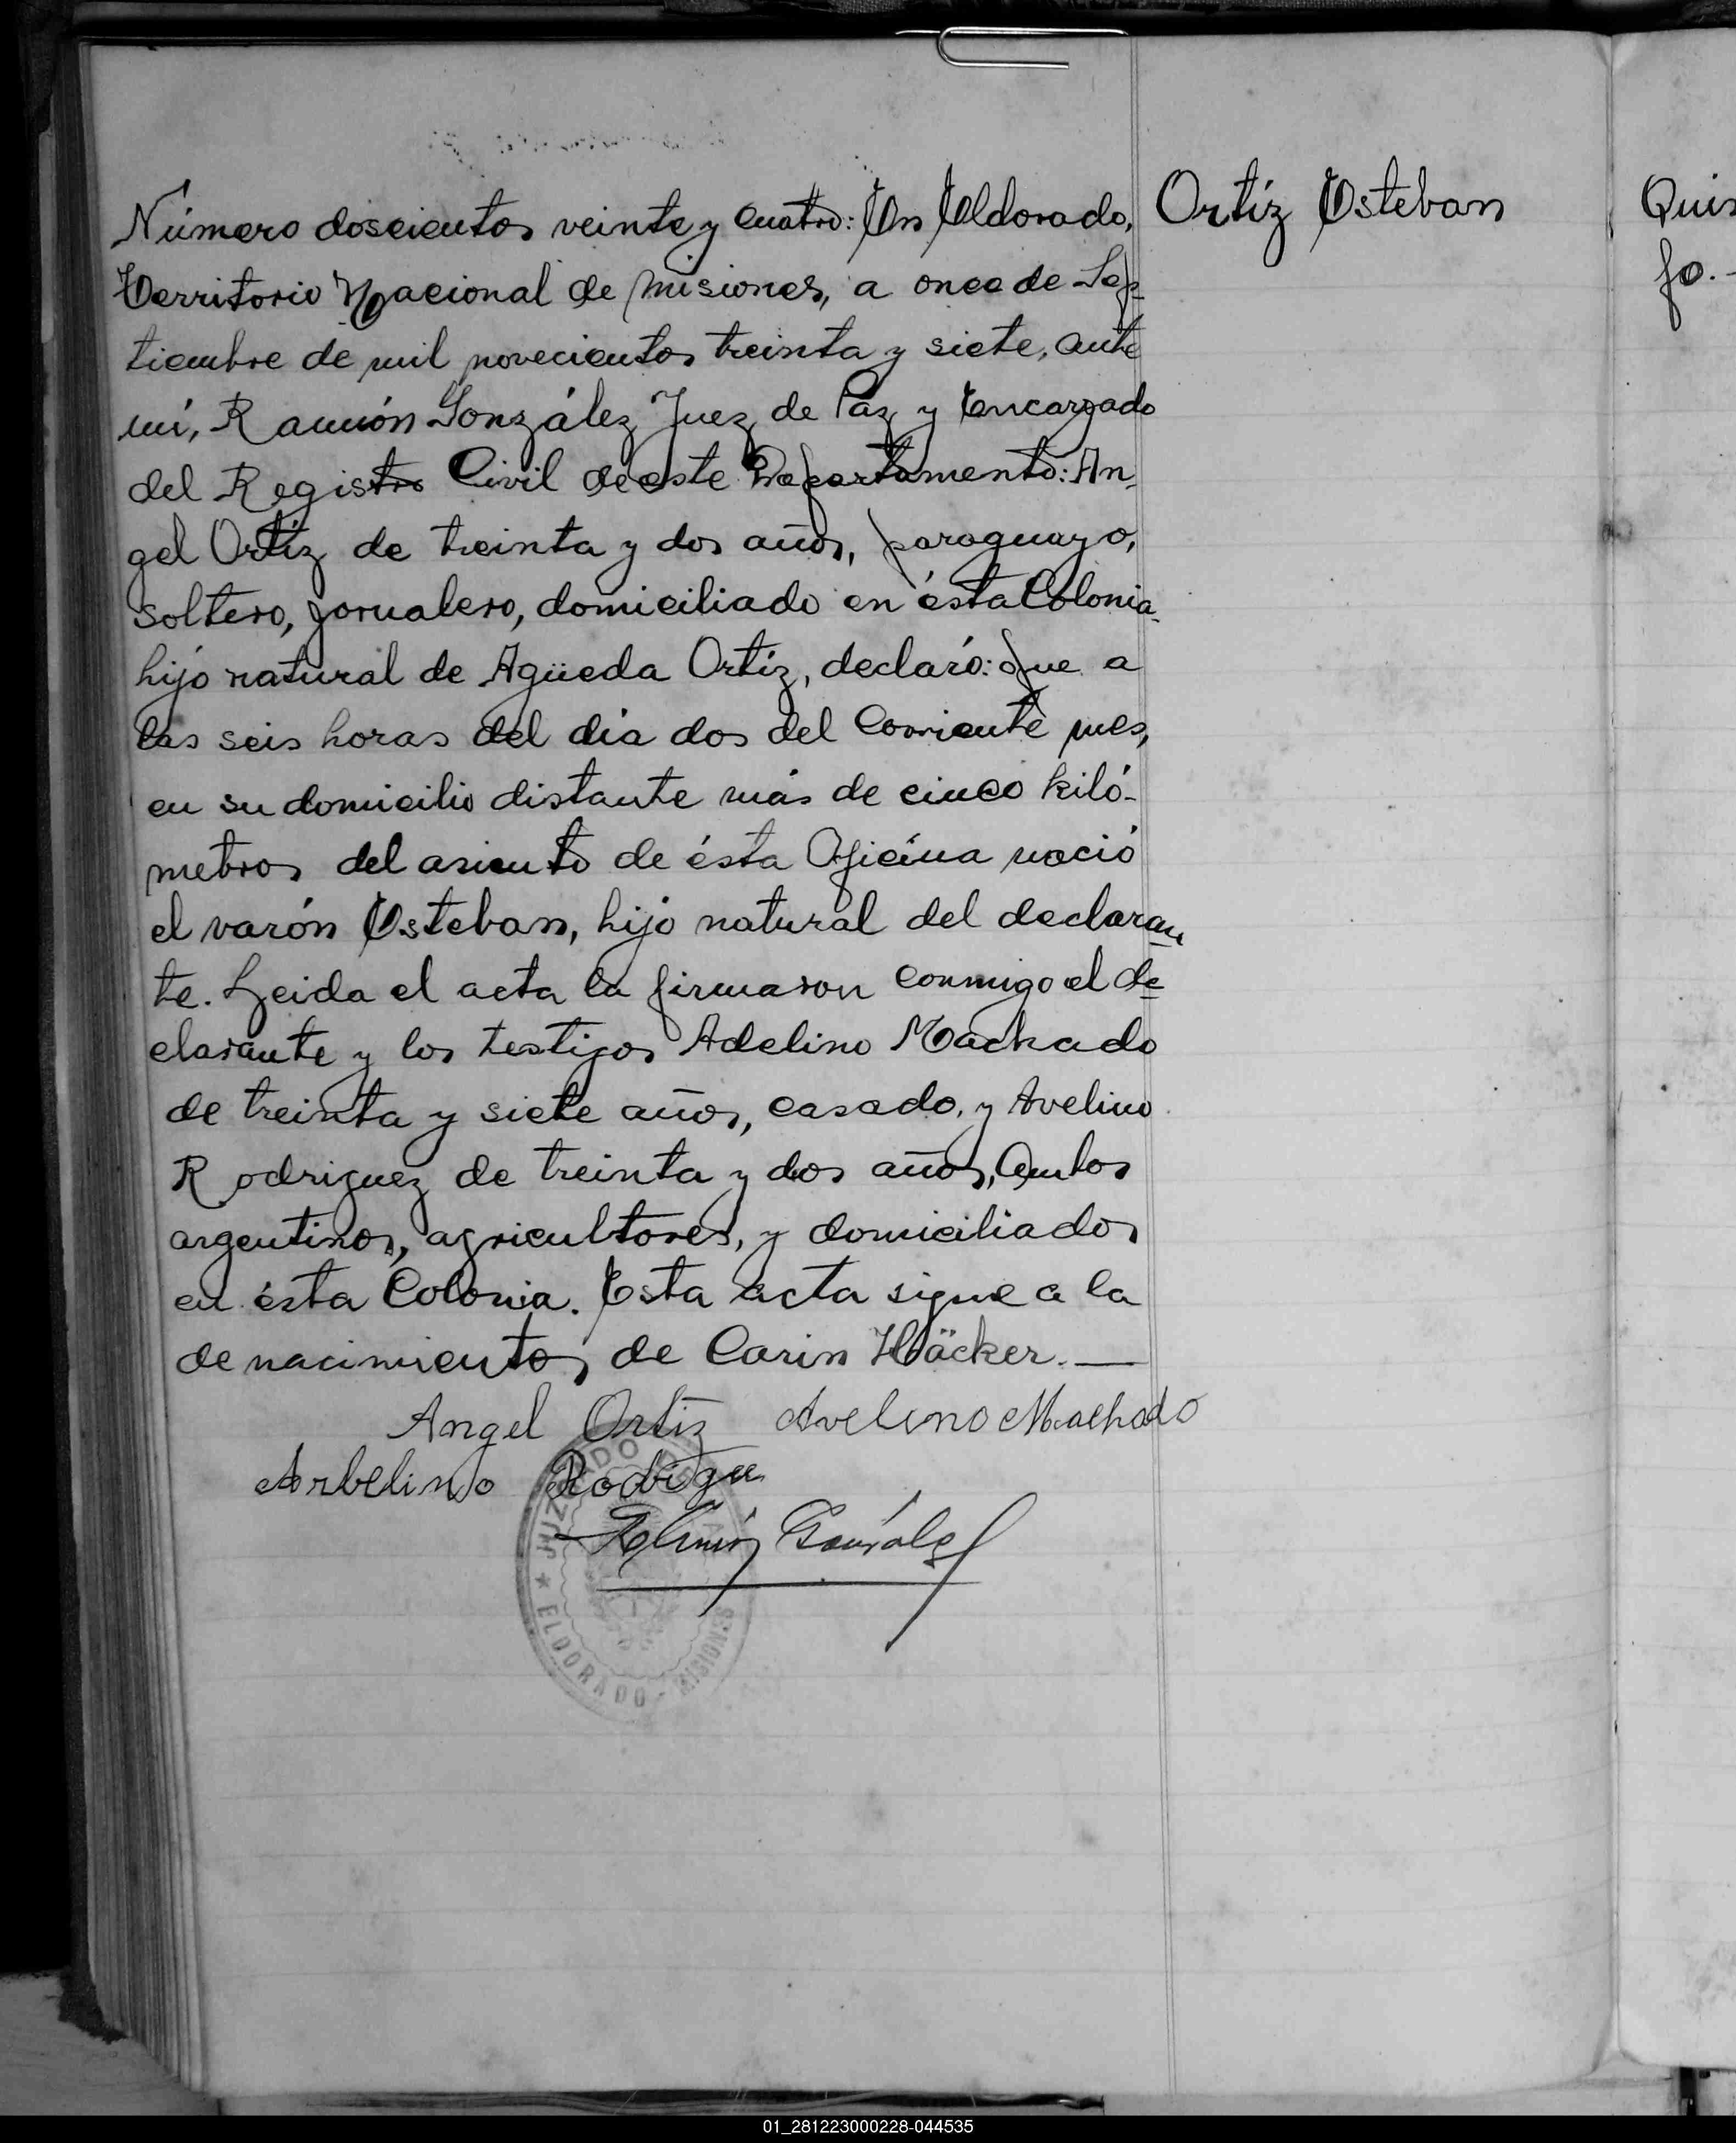 Número doscientos veinte y cuatro: En Eldorado,
Territorio Nacional de Misiones, a once de Sep-
tiembre de mil novecientos treinta y siete, ante
mí, Ramón González Juez de Paz y Encargado
del Registro Civil de este Departamento: An-
gel Ortíz de treinta y dos años, paraguayo,
soltero, jornalero, domiciliado en ésta Colonia-
hijo natural de Agüeda Ortíz, declaró: que a
las seis horas del día dos del corriente mes,
en su domicilio distante más de cinco kiló-
metros del asiento de ésta Oficina nació
el varón Esteban, hijo natural del declaran
te. Leida el acta la firmaron conmigo el de
clarante y los testigos Adelino Machado
de treinta y siete años, casado, y Avelino
Rodriguez de treinta y dos años, Ambos
argentinos, agricultores, y domiciliados
en ésta Colonia. Esta acta sigue a la
de nacimientos de Carin Häcker.—
Angel Ortiz Avelino Machado
Arbelino Rodrigue
Ramón González
JUZGADO
★ ELDORADO - MISIONES
Ortíz Esteban
Quin
fo.-
01_281223000228-044535